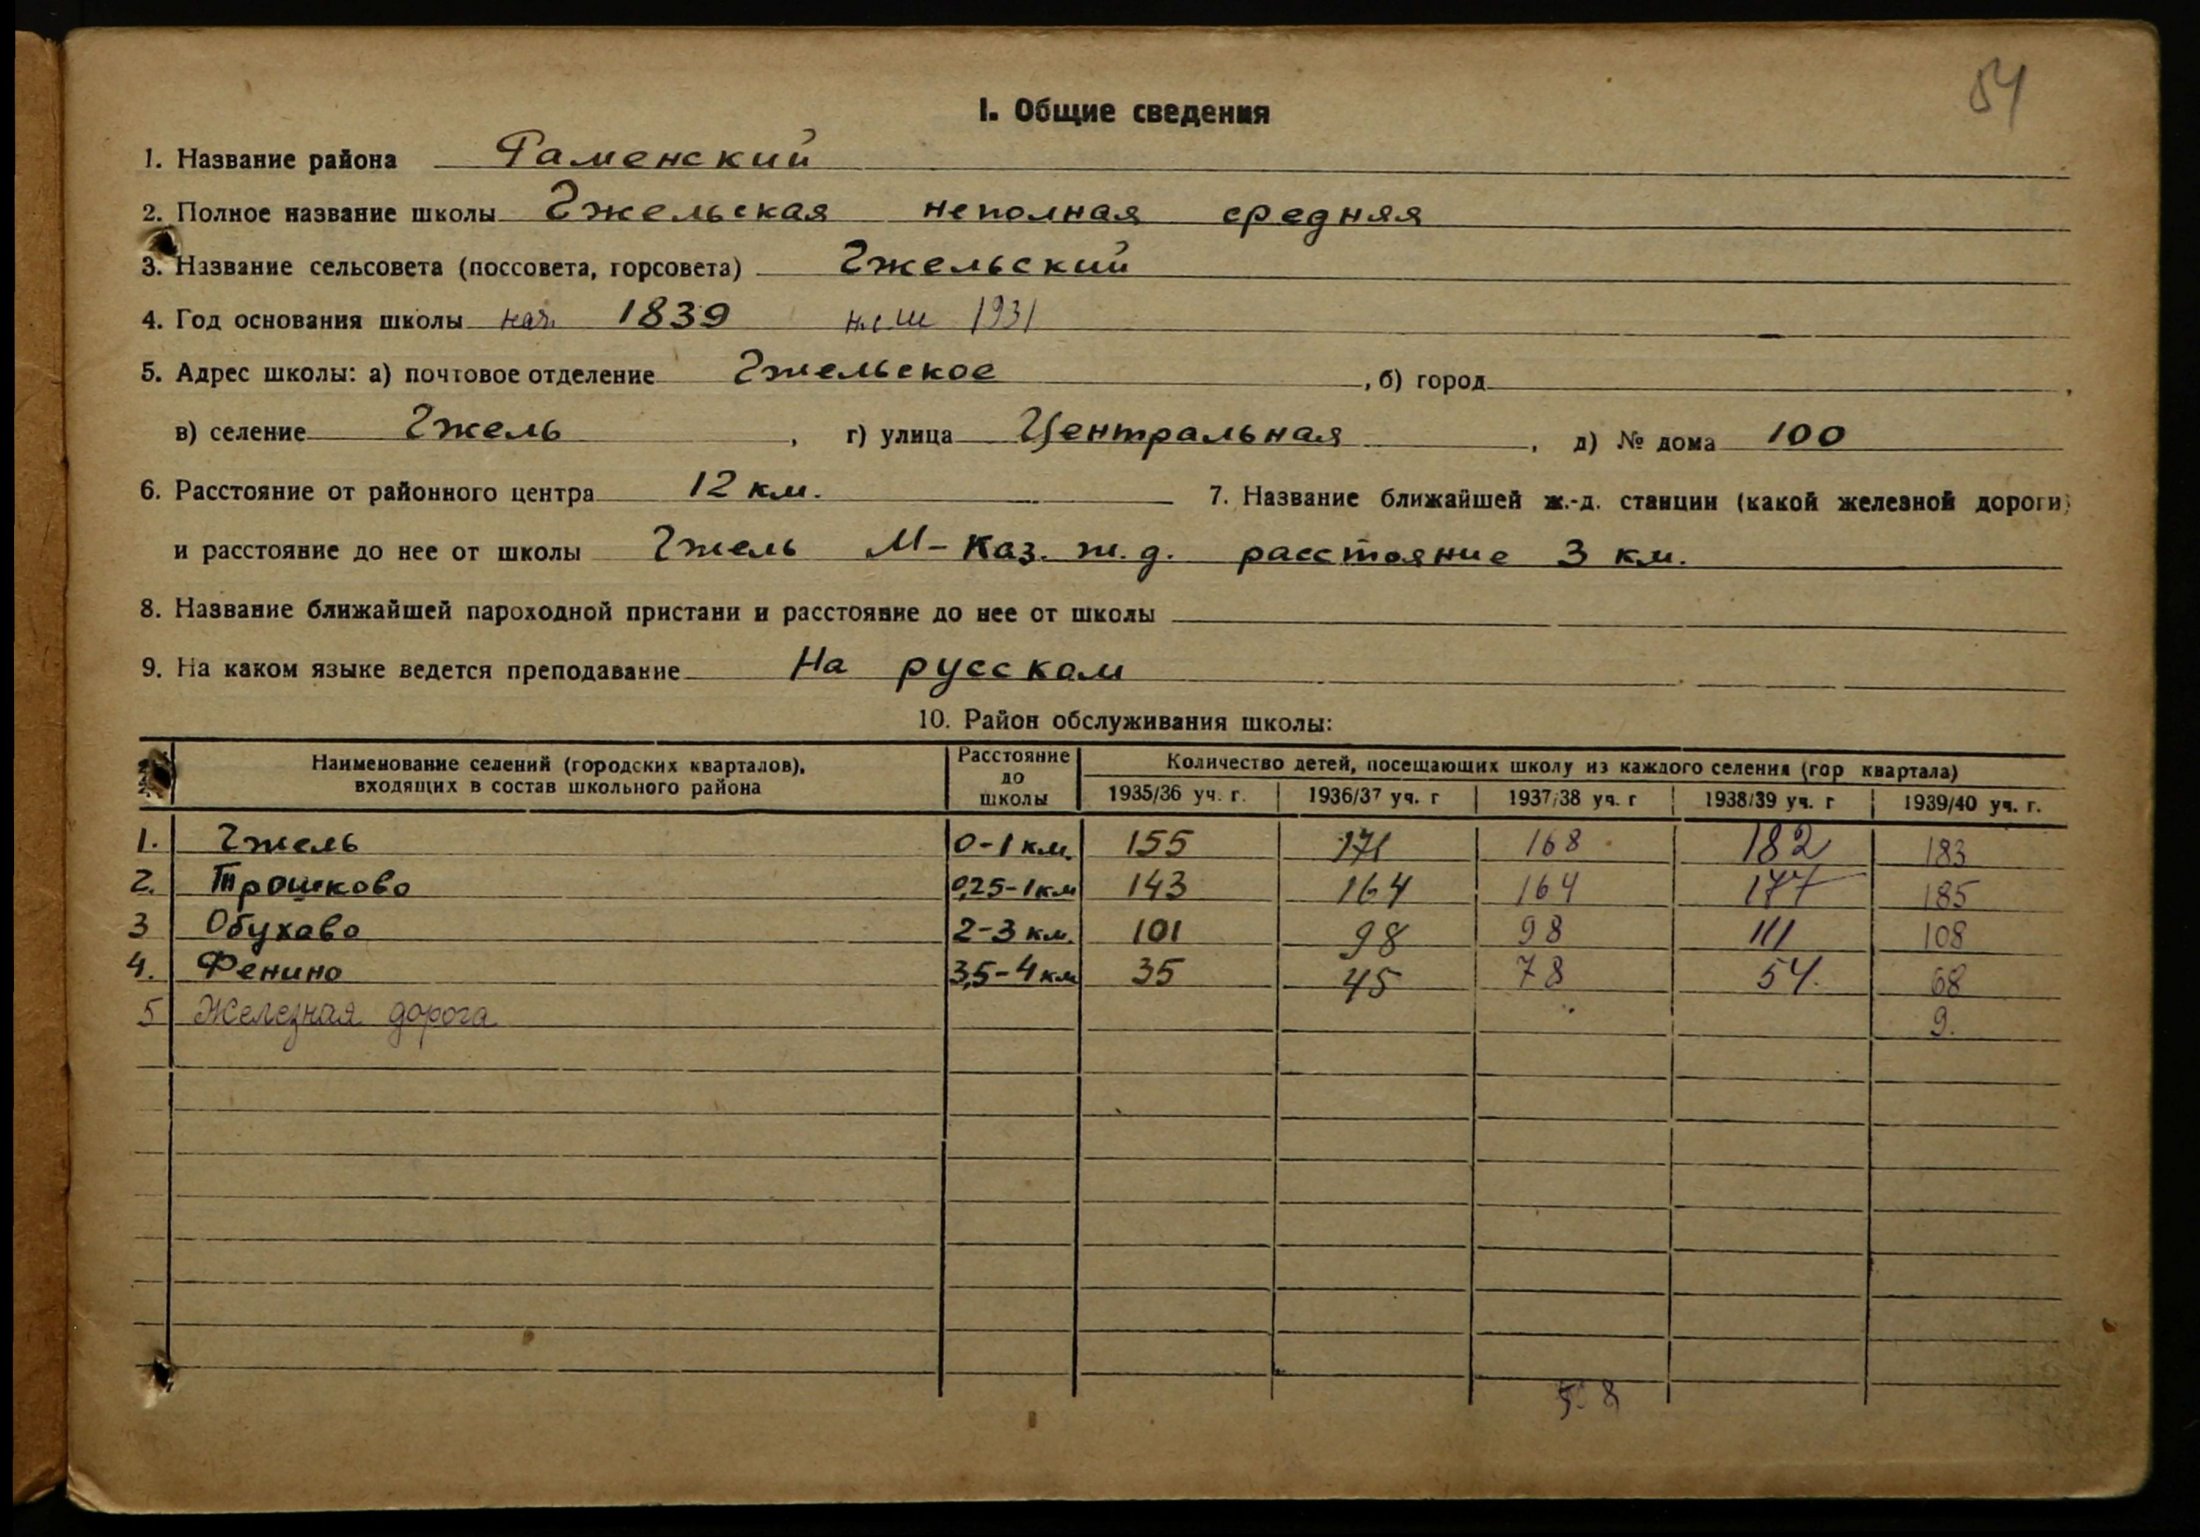 54
I. Общие сведения
1. Название района Раменский
2. Полное название школы Гжельская неполная средняя
3. Название сельсовета (поссовета, горсовета) Гжельский
4. Год основания школы нач. 1839 н.с.ш 1931
5. Адрес школы: а) почтовое отделение Гжельское, б) город ,
в) селение Гжель, г) улица Центральная, д) № дома 100
6. Расстояние от районного центра 12 км. 7. Название ближайшей ж.-д. станции (какой железной дороги)
и расстояние до нее от школы Гжель М-Каз. ж.д. расстояние 3 км.
8. Название ближайшей пароходной пристани и расстояние до нее от школы
9. На каком языке ведется преподавание На русском
10. Район обслуживания школы:
Наименование селений (городских кварталов), Расстояние Количество детей, посещающих школу из каждого селения (гор квартала)
входящих в состав школьного района до школы 1935/36 уч. г. 1936/37 уч. г 1937/38 уч. г 1938/39 уч. г 1939/40 уч. г.
1. Гжель 0-1 км. 155 171 168 182 183
2. Трошково 0,25-1 км 143 164 164 177 185
3 Обухово 2-3 км. 101 98 98 111 108
4. Фенино 3,5-4 км 35 45 78 54. 68
5 Железная дорога 9.
508